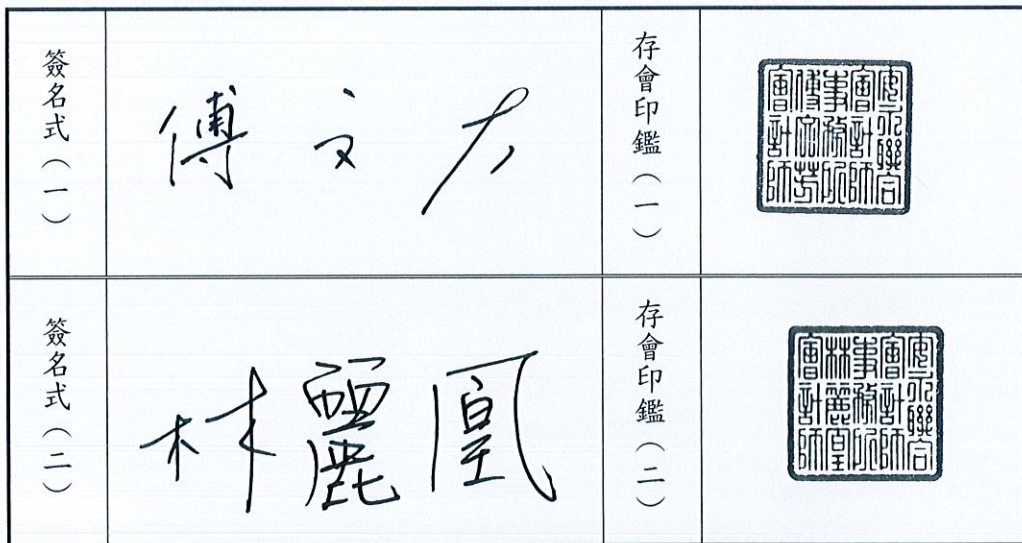 簽名式(一)
傅文芳
存會印鑑(一)
安永聯合
會計師
事務所
傅文芳
會計師
簽名式(二)
林麗凰
存會印鑑(二)
安永聯合
會計師
事務所
林麗凰
會計師